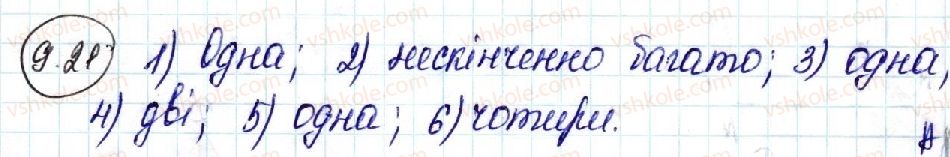 9.21 1) Одна; 2) нескінченно багато; 3) одна,
4) дві; 5) одна; 6) чотири.